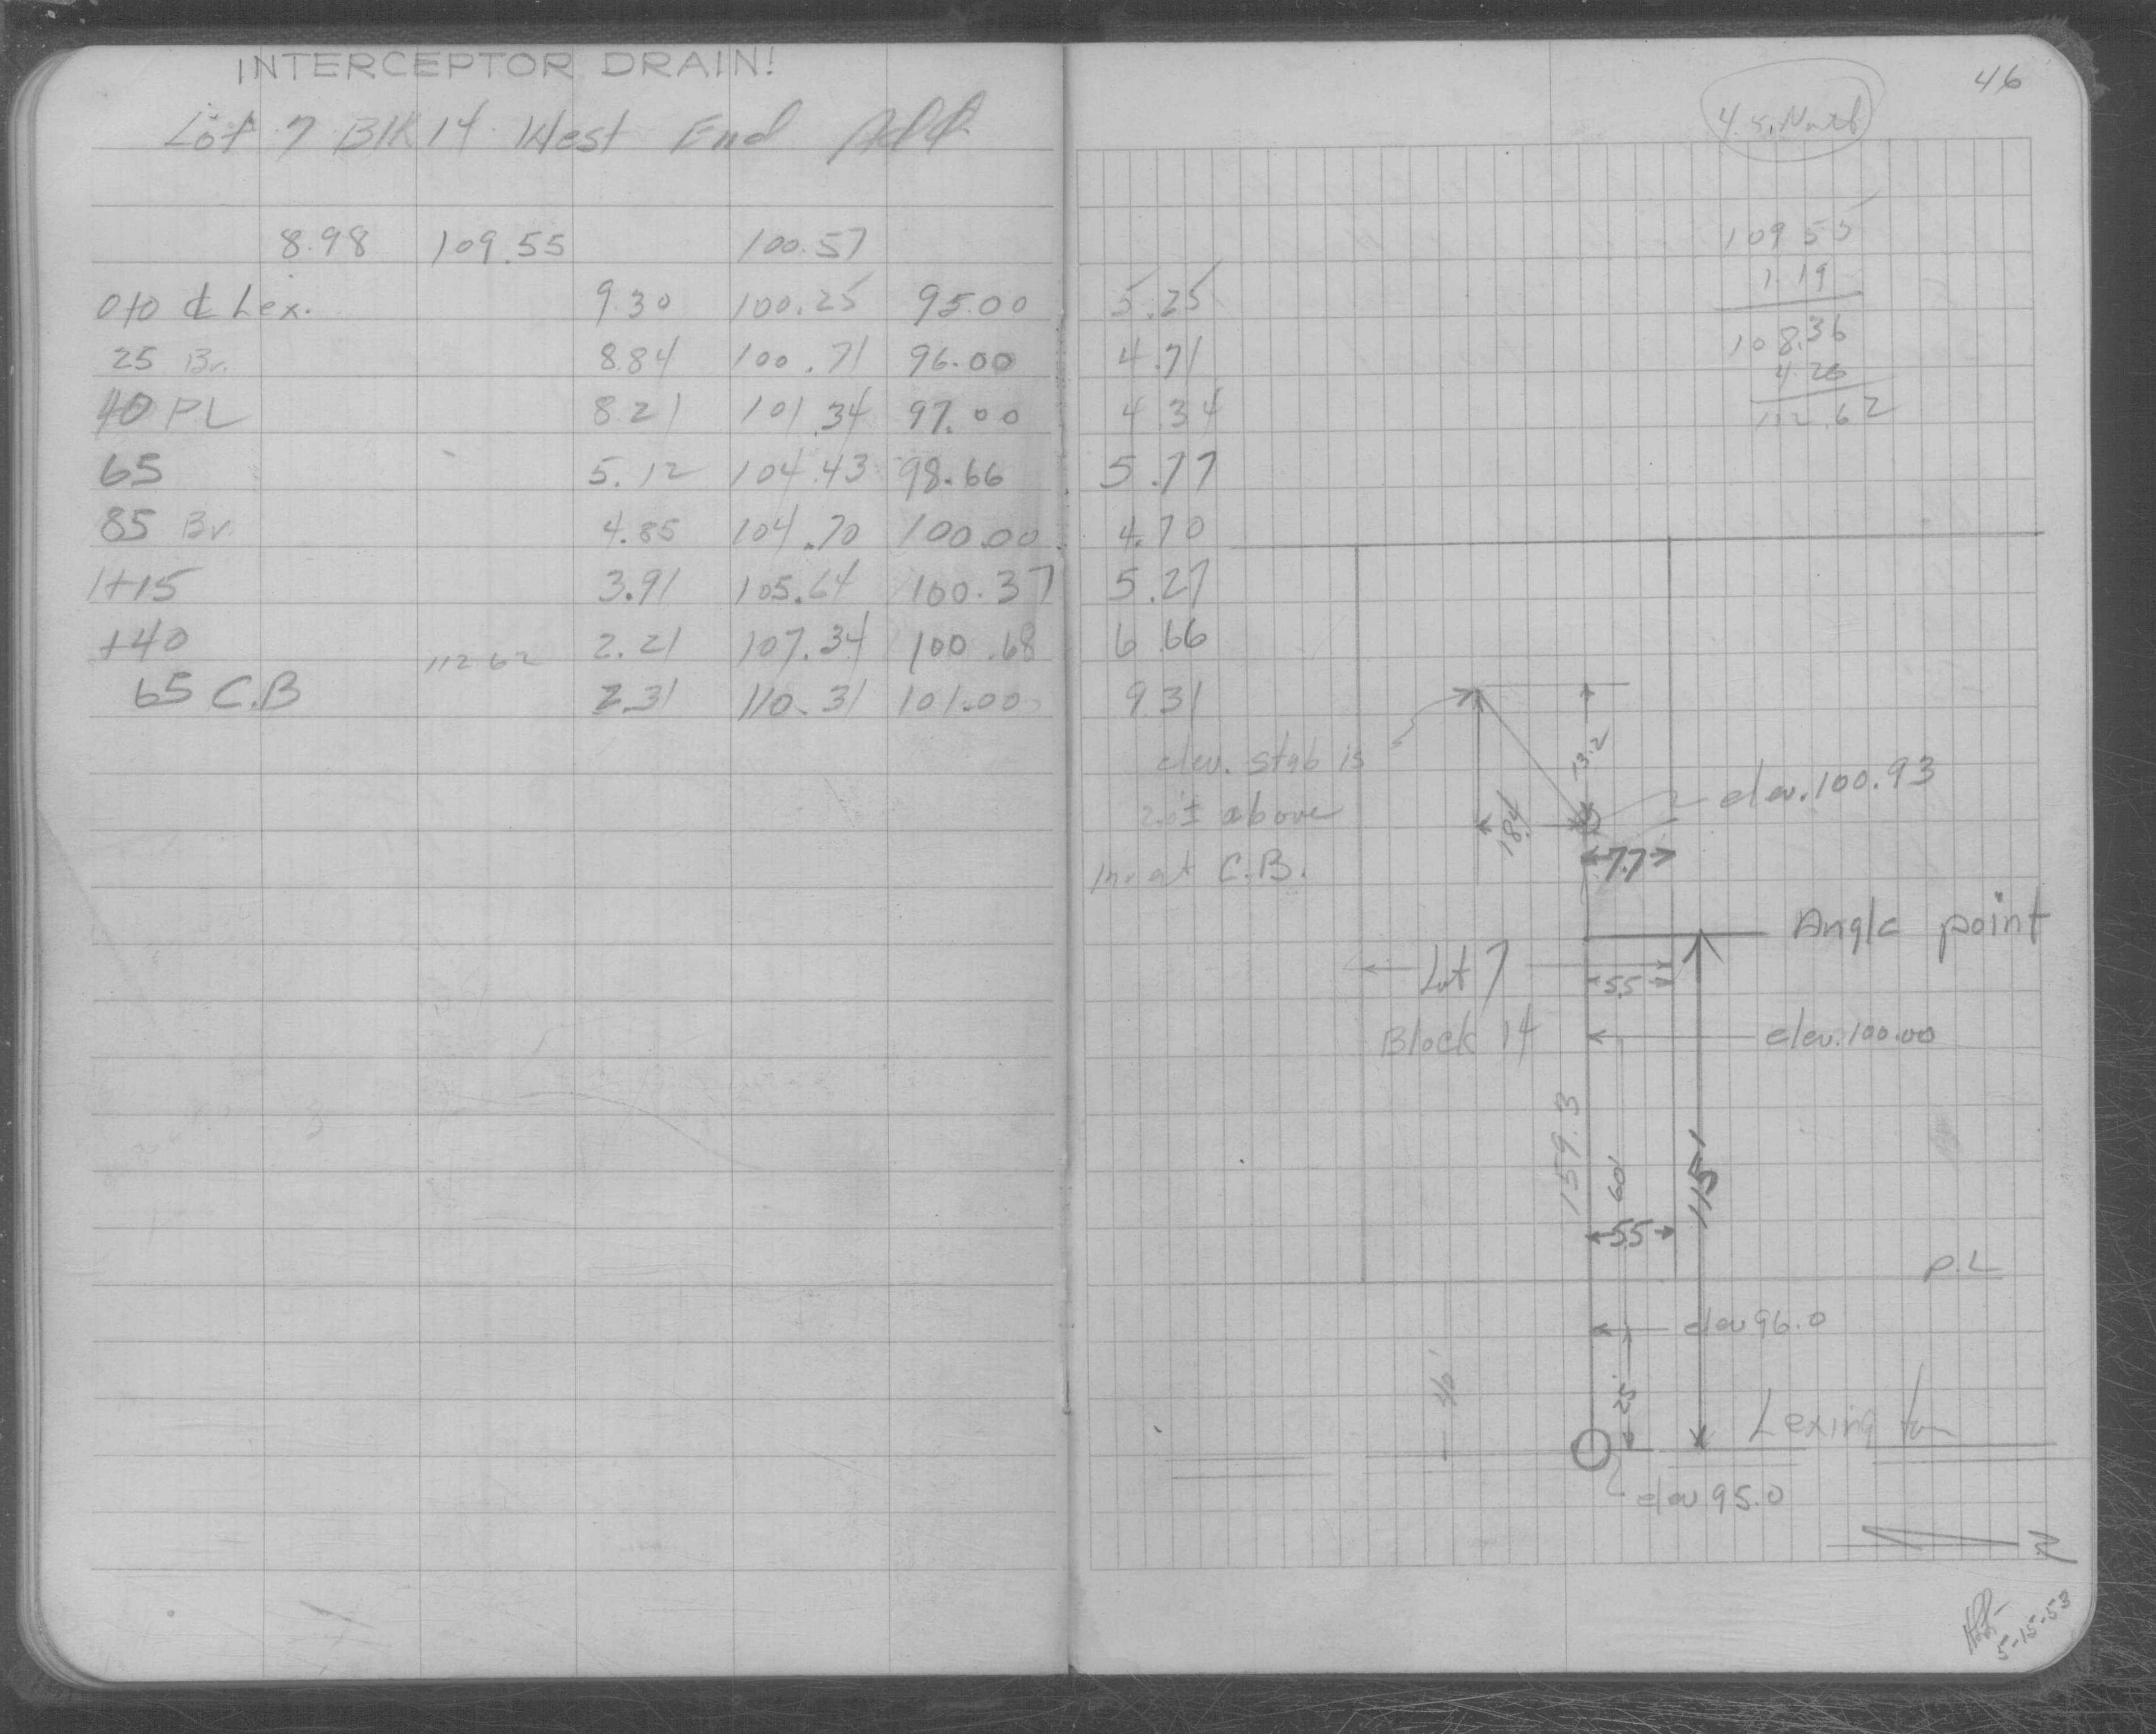 INTERCEPTOR DRAIN!
Lot 7 Blk 14 West End Add.
8.98 109.55 100.57
0+0 ₵ Lex. 9.30 100.25 95.00 5.25
25 Br. 8.84 100.71 96.00 4.71
40 PL 8.21 101.34 97.00 4.34
65 5.12 104.43 98.66 5.77
85 Br. 4.85 104.70 100.00 4.70
1+15 3.91 105.64 100.37 5.27
+40 2.21 107.34 100.68 6.66
112.62
65 C.B 2.31 110.31 101.00 9.31
46
109 55
1.19
108.36
4.26
112.62
elev. stab is
2.0± above
Inv at C.B.
13.2
18.4
elev. 100.93
7.7
Angle point
Lot 7
5.5
Block 14
elev. 100.00
159.3
60'
115'
5.5
P.L
elev 96.0
40'
25'
Lexington
elev 95.0
N
5-15-53